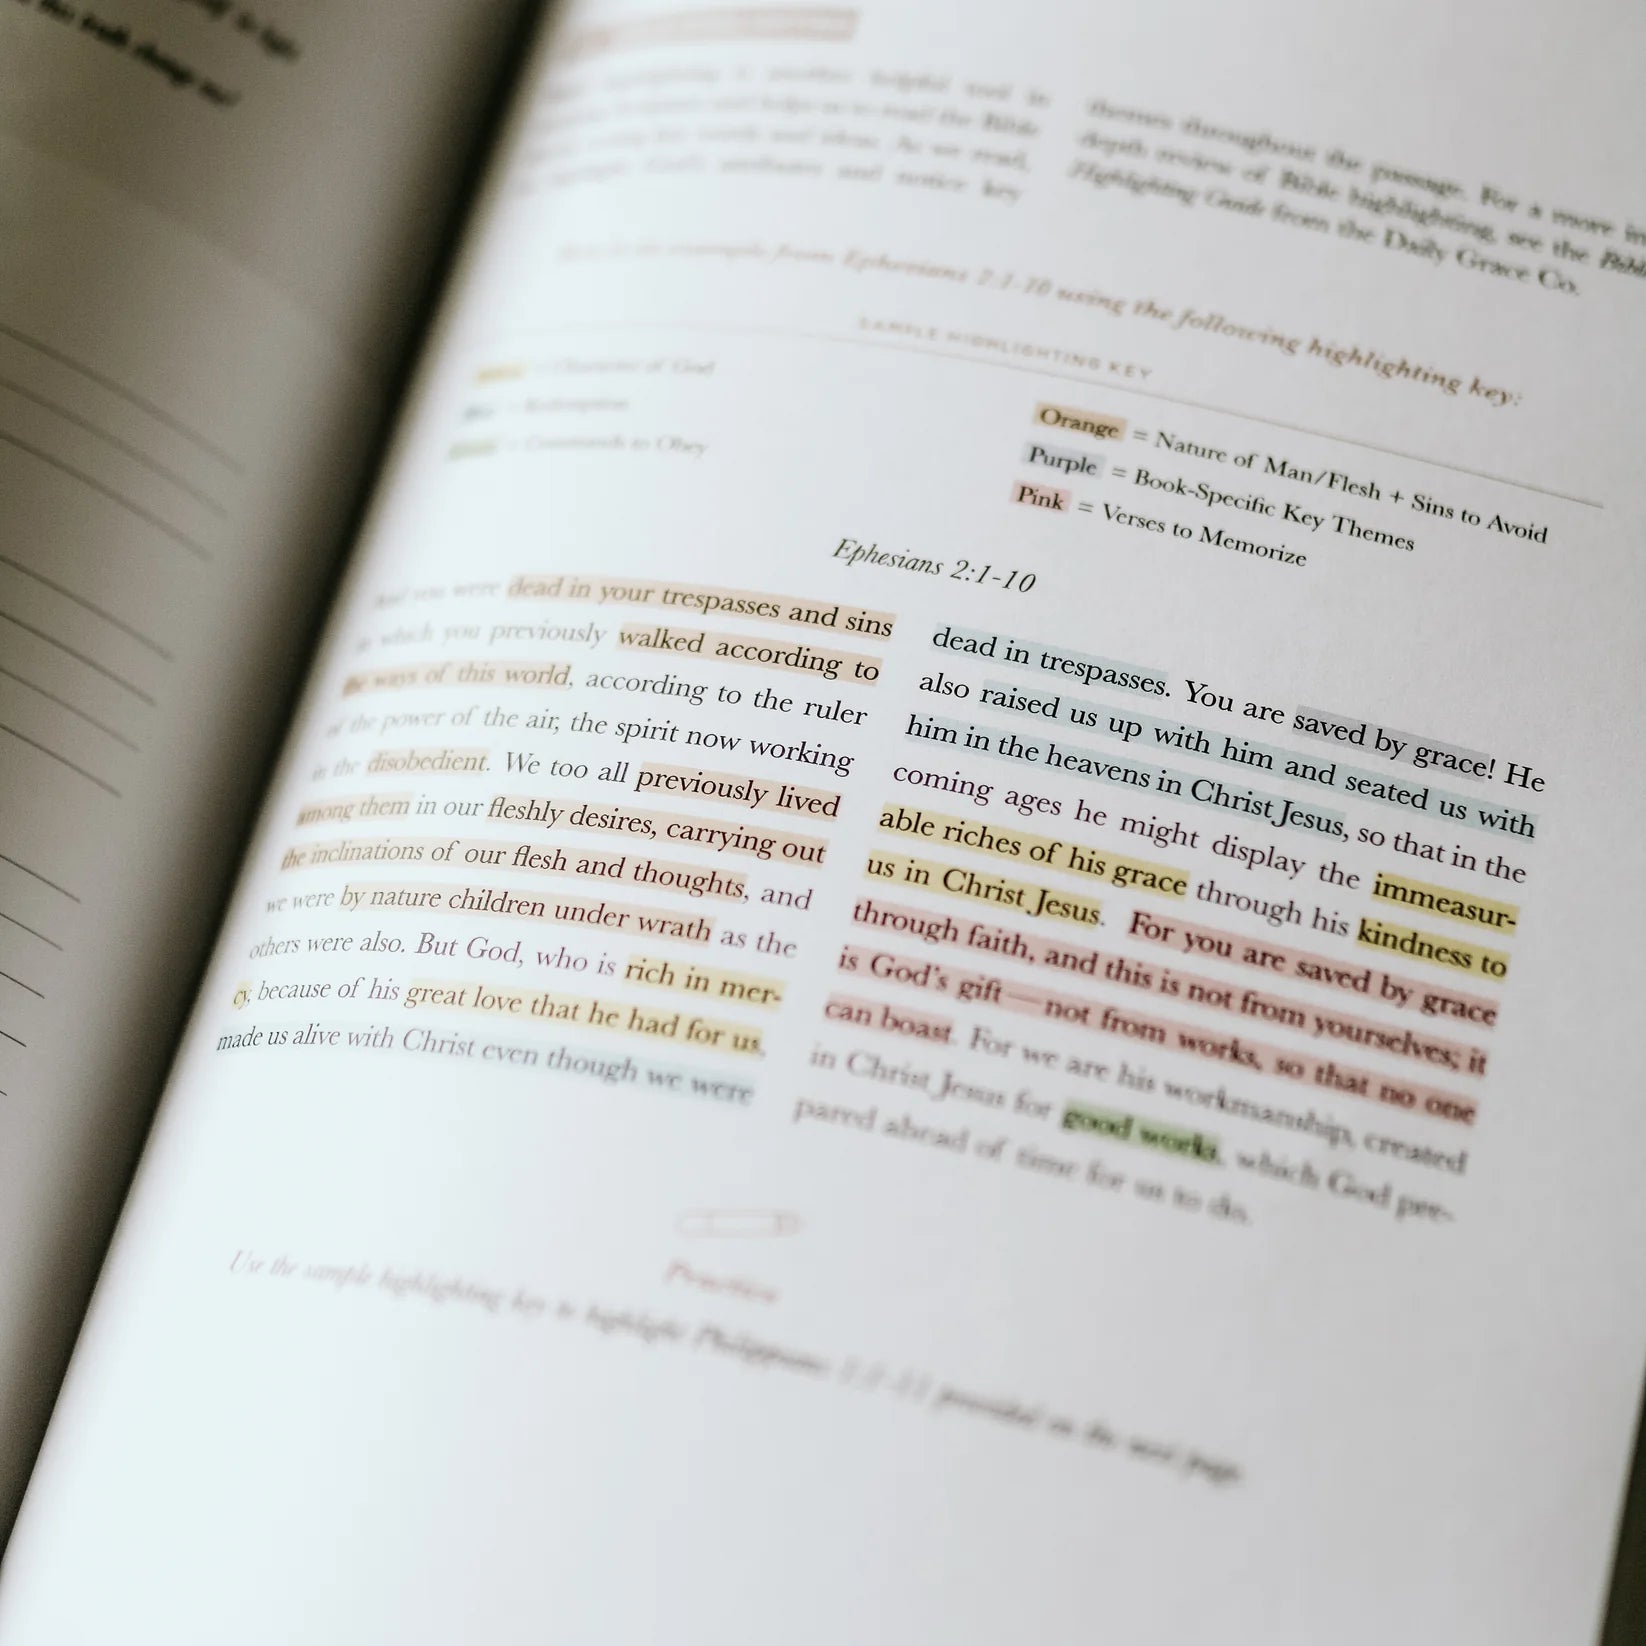 another helpful tool in
to read the Bible
and ideas. As we read,
attributes and notice key
themes throughout the passage. For a more in-
depth review of Bible highlighting, see the Bible
Highlighting Guide from the Daily Grace Co.
example from Ephesians 2:1-10 using the following highlighting key:
SAMPLE HIGHLIGHTING KEY
= Character of God
= Redemption
= Commands to Obey
Orange = Nature of Man/Flesh + Sins to Avoid
Purple = Book-Specific Key Themes
Pink = Verses to Memorize
Ephesians 2:1-10
And you were dead in your trespasses and sins
in which you previously walked according to
the ways of this world, according to the ruler
of the power of the air, the spirit now working
in the disobedient. We too all previously lived
among them in our fleshly desires, carrying out
the inclinations of our flesh and thoughts, and
we were by nature children under wrath as the
others were also. But God, who is rich in mer-
cy, because of his great love that he had for us,
made us alive with Christ even though we were
dead in trespasses. You are saved by grace! He
also raised us up with him and seated us with
him in the heavens in Christ Jesus, so that in the
coming ages he might display the immeasur-
able riches of his grace through his kindness to
us in Christ Jesus. For you are saved by grace
through faith, and this is not from yourselves; it
is God's gift—not from works, so that no one
can boast. For we are his workmanship, created
in Christ Jesus for good works, which God pre-
pared ahead of time for us to do.
Practice
Use the sample highlighting key to highlight Philippians provided on the next page.